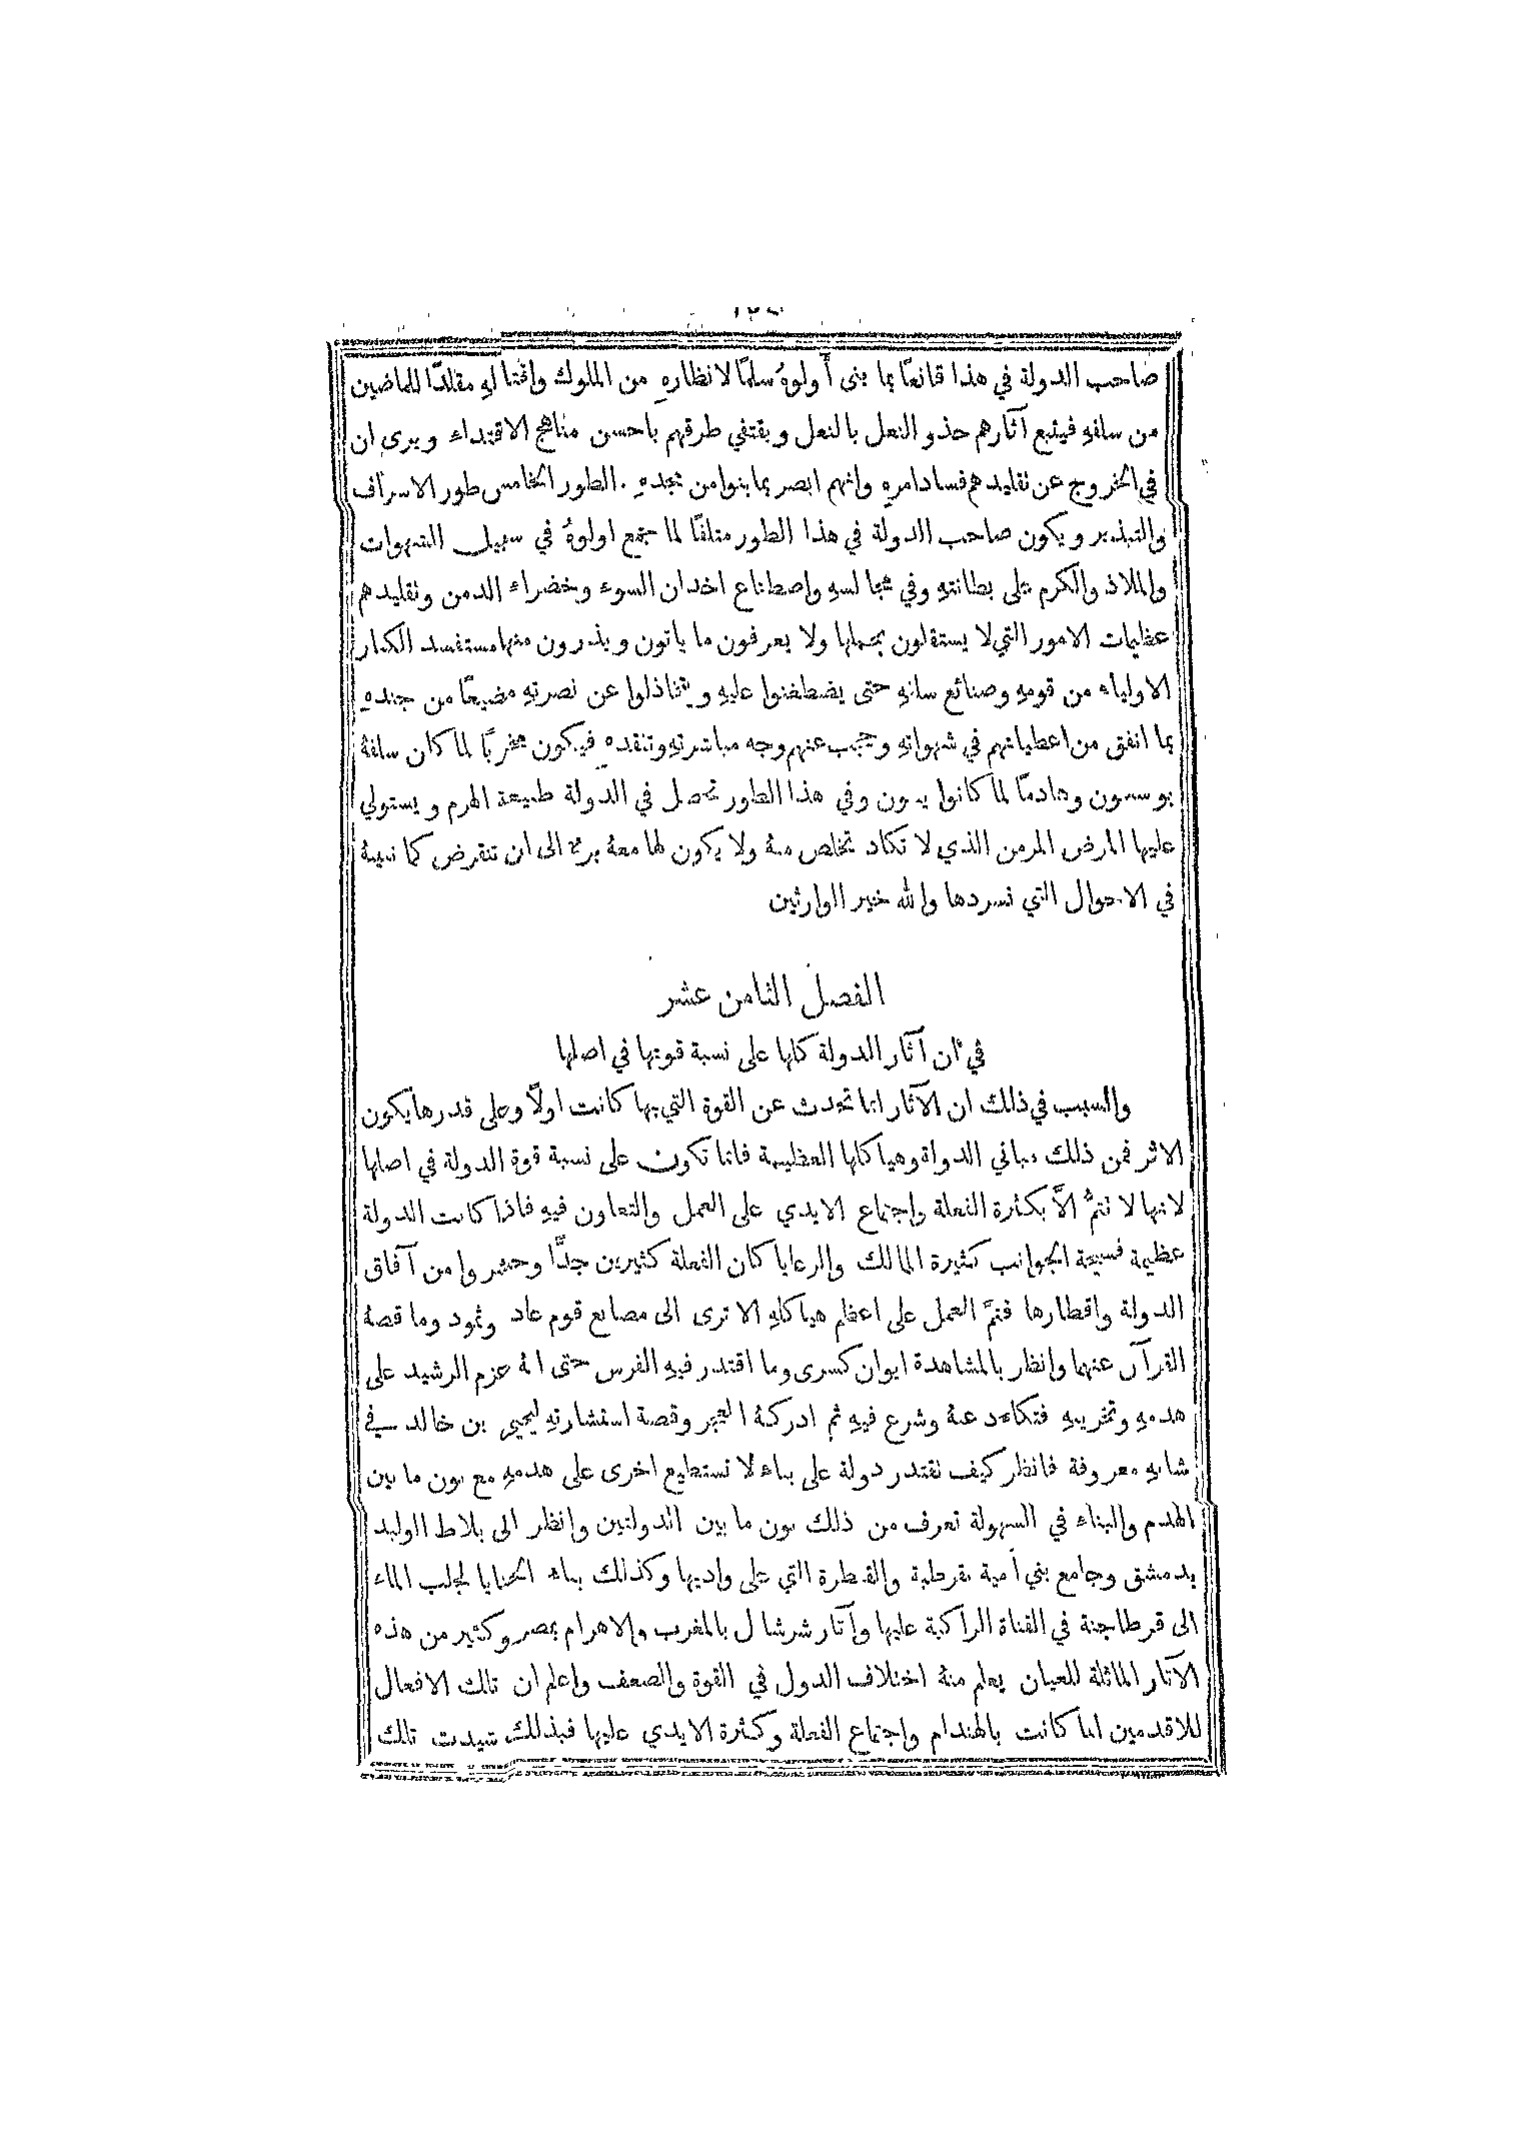 صاحب الدولة في هذا قانعًا بما بنى أولوهُ سلمًا لانظارهِ من الملوك واقتالهِ مقلدًا للماضين
من سلفهِ فيتبع آثارهم حذو النعل بالنعل ويقتفي طرقهم باحسن مناهج الاقتداء ويرى ان
في الخروج عن تقليدهم فساد امرهِ وانهم ابصر بما بنوا من مجدهِ . الطور الخامس طور الاسراف
والتبذير ويكون صاحب الدولة في هذا الطور متلفًا لما جمع اولوهُ في سبيل الشهوات
والملاذ والكرم على بطانتهِ وفي مجالسهِ واصطناع اخدان السوء وخضراء الدمن وتقليدهم
عظيمات الامور التي لا يستقلون بحملها ولا يعرفون ما ياتون ويذرون منها مستفسد الكبار
الاولياء من قومهِ وصنائع سلفهِ حتى يضطغنوا عليهِ ويتخاذلوا عن نصرتهِ مضيعًا من جندهِ
بما انفق من اعطياتهم في شهواتهِ وحجب عنهم وجه مباشرتهِ وتفقدهِ فيكون مخربًا لما كان سلفهُ
يوسسون وهادمًا لما كانوا يبنون وفي هذا الطور تحصل في الدولة طبيعة الهرم ويستولي
عليها المرض المزمن الذي لا تكاد تخلص منهُ ولا يكون لها معهُ برء الى ان تنقرض كما نبينهُ
في الاحوال التي نسردها والله خير الوارثين
الفصل الثامن عشر
في ان آثار الدولة كلها على نسبة قوتها في اصلها
والسبب في ذلك ان الآثار انما تحدث عن القوة التي بها كانت اولًا وعلى قدرها يكون
الاثر فمن ذلك مباني الدولة وهياكلها العظيمة فانما تكون على نسبة قوة الدولة في اصلها
لانها لا تتمُّ الَّا بكثرة الفعلة واجتماع الايدي على العمل والتعاون فيهِ فاذا كانت الدولة
عظيمة فسيحة الجوانب كثيرة الممالك والرعايا كان الفعلة كثيرين جدًّا وحشروا من آفاق
الدولة واقطارها فتمَّ العمل على اعظم هياكلهِ الا ترى الى مصانع قوم عاد وثمود وما قصهُ
القرآن عنهما وانظر بالمشاهدة ايوان كسرى وما اقتدر فيهِ الفرس حتى انهُ عزم الرشيد على
هدمهِ وتخريبهِ فتكاءد عنهُ وشرع فيهِ ثم ادركهُ العجز وقصة استشارتهِ ليحيى بن خالد في
شانهِ معروفة فانظر كيف تقتدر دولة على بناء لا تستطيع اخرى على هدمهِ مع بون ما بين
الهدم والبناء في السهولة تعرف من ذلك بون ما بين الدولتين وانظر الى بلاط الوليد
بدمشق وجامع بني أمية بقرطبة والقنطرة التي على واديها وكذلك بناء الحنايا لجلب الماء
الى قرطاجنة في القناة الراكبة عليها وآثار شرشال بالمغرب والاهرام بمصر وكثير من هذه
الآثار الماثلة للعيان يعلم منهُ اختلاف الدول في القوة والضعف واعلم ان تلك الافعال
للاقدمين انما كانت بالهندام واجتماع الفعلة وكثرة الايدي عليها فبذلك شيدت تلك